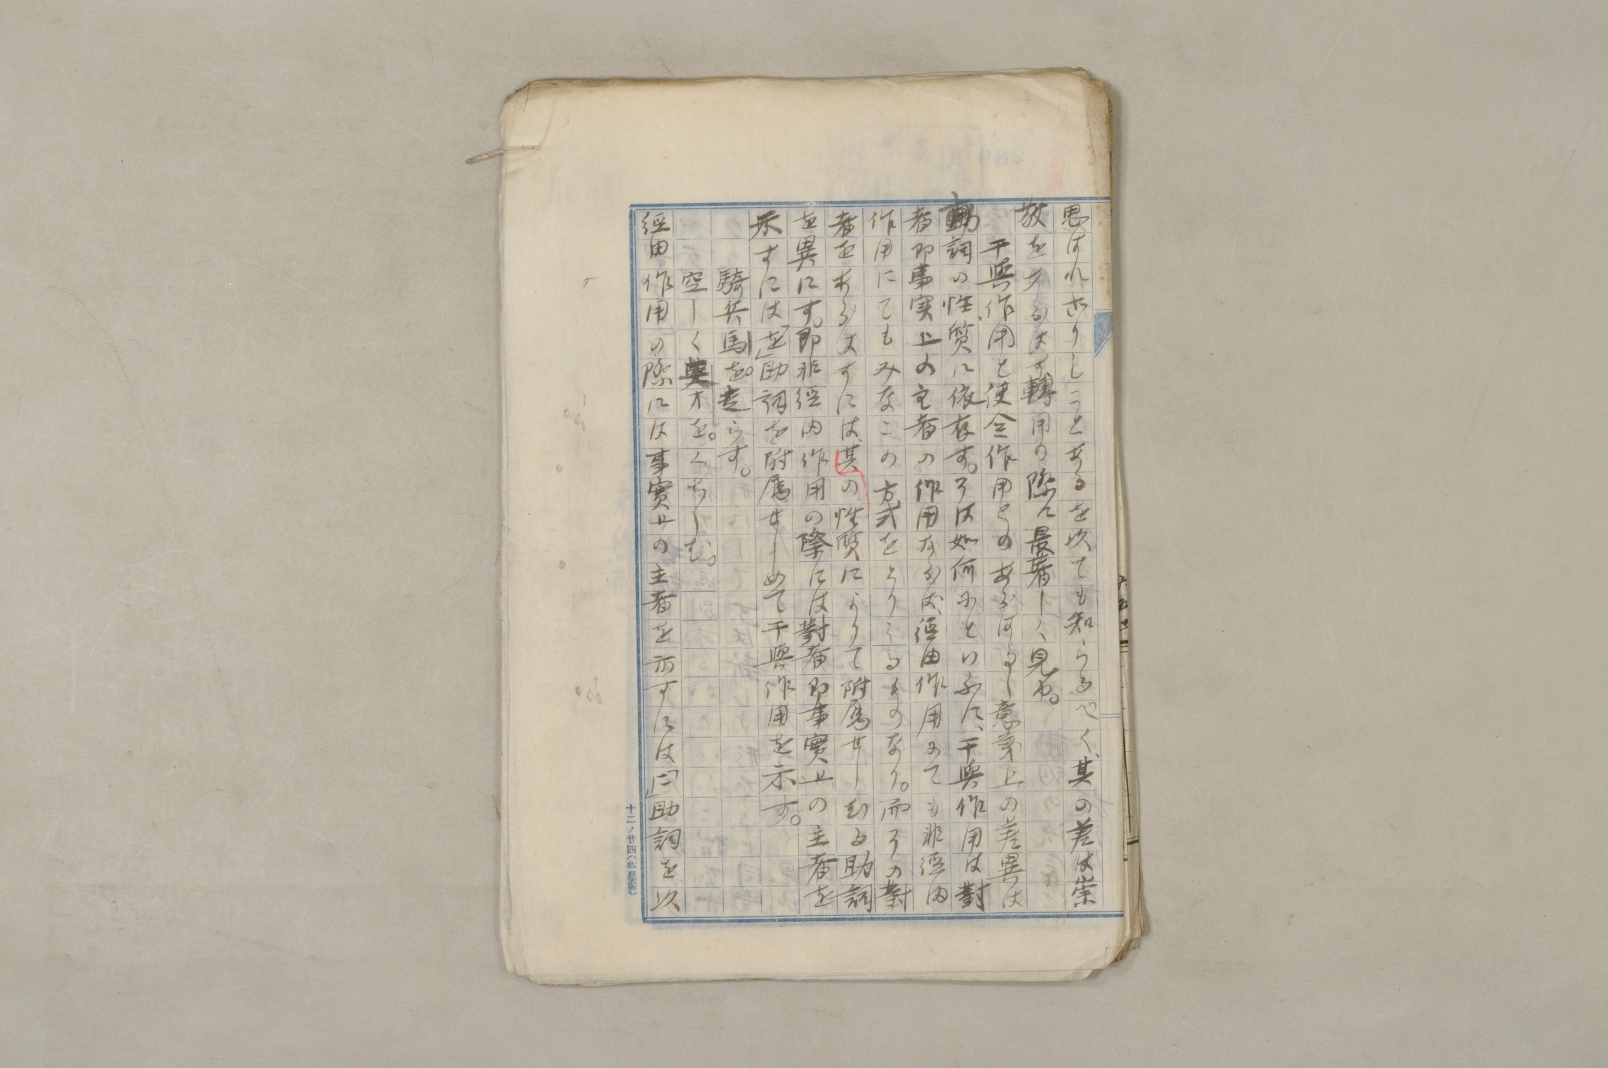 思はれざりしことあるを以ても知らるべく、其の差は崇
敬をあらはす轉用の際に最著しく見ゆ。
干與作用と使令作用とのあらはるゝ意義上の差異は
動詞の性質に依存す。そは如何にといふに、干與作用は對
者即事実上の主者の作用ならば、經由作用にても非經由
作用にてもみなこの方式をとりうるものなり。而その對
者をあらはすには、其の性質によりて附属せしむる助詞
を異にす。即非經由作用の際には對者即事實上の主者を
示すには「を」助詞を附属せしめて干與作用を示す。
騎兵馬を走らす。
空しく英才をくちしむ。
經由作用の際には事實上の主者を示すには「に」助詞を以
十二ノ廿四(松屋製)